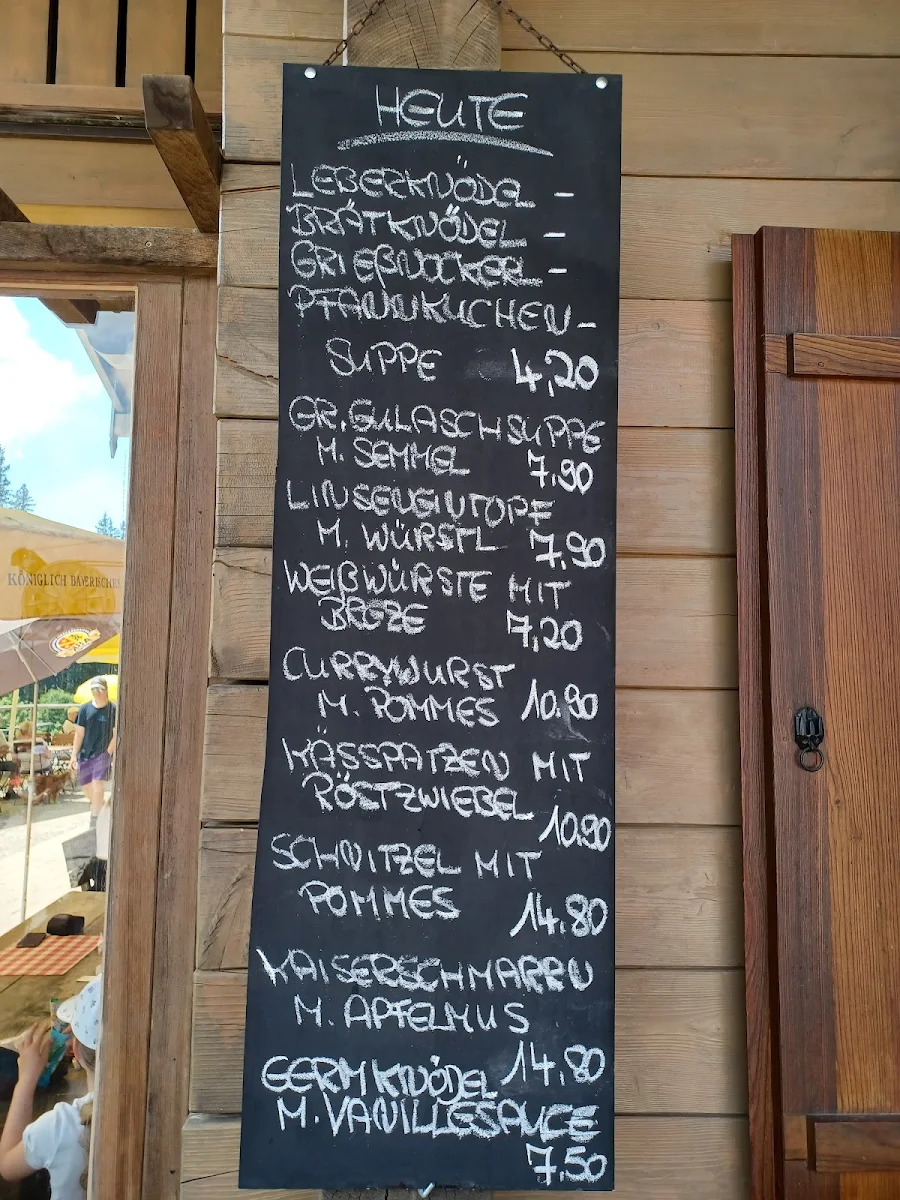 HEUTE
LEBERKNÖDEL -
BRÄTKNÖDEL -
GRIEßNOCKERL -
PFANNKUCHEN -
SUPPE 4,20
GR. GULASCHSUPPE
M. SEMMEL 7.90
LINSENEINTOPF
M. WÜRSTL 7.90
WEIßWÜRSTE MIT
BREZE 7,20
CURRYWURST
M. POMMES 10.90
KÄSSPATZEN MIT
RÖSTZWIEBEL
10.90
SCHNITZEL MIT
POMMES 14.80
KAISERSCHMARRN
M. APFELMUS
14.80
GERMKNÖDEL
M. VANILLESAUCE
7.50
KÖNIGLICH BAYERISCHES